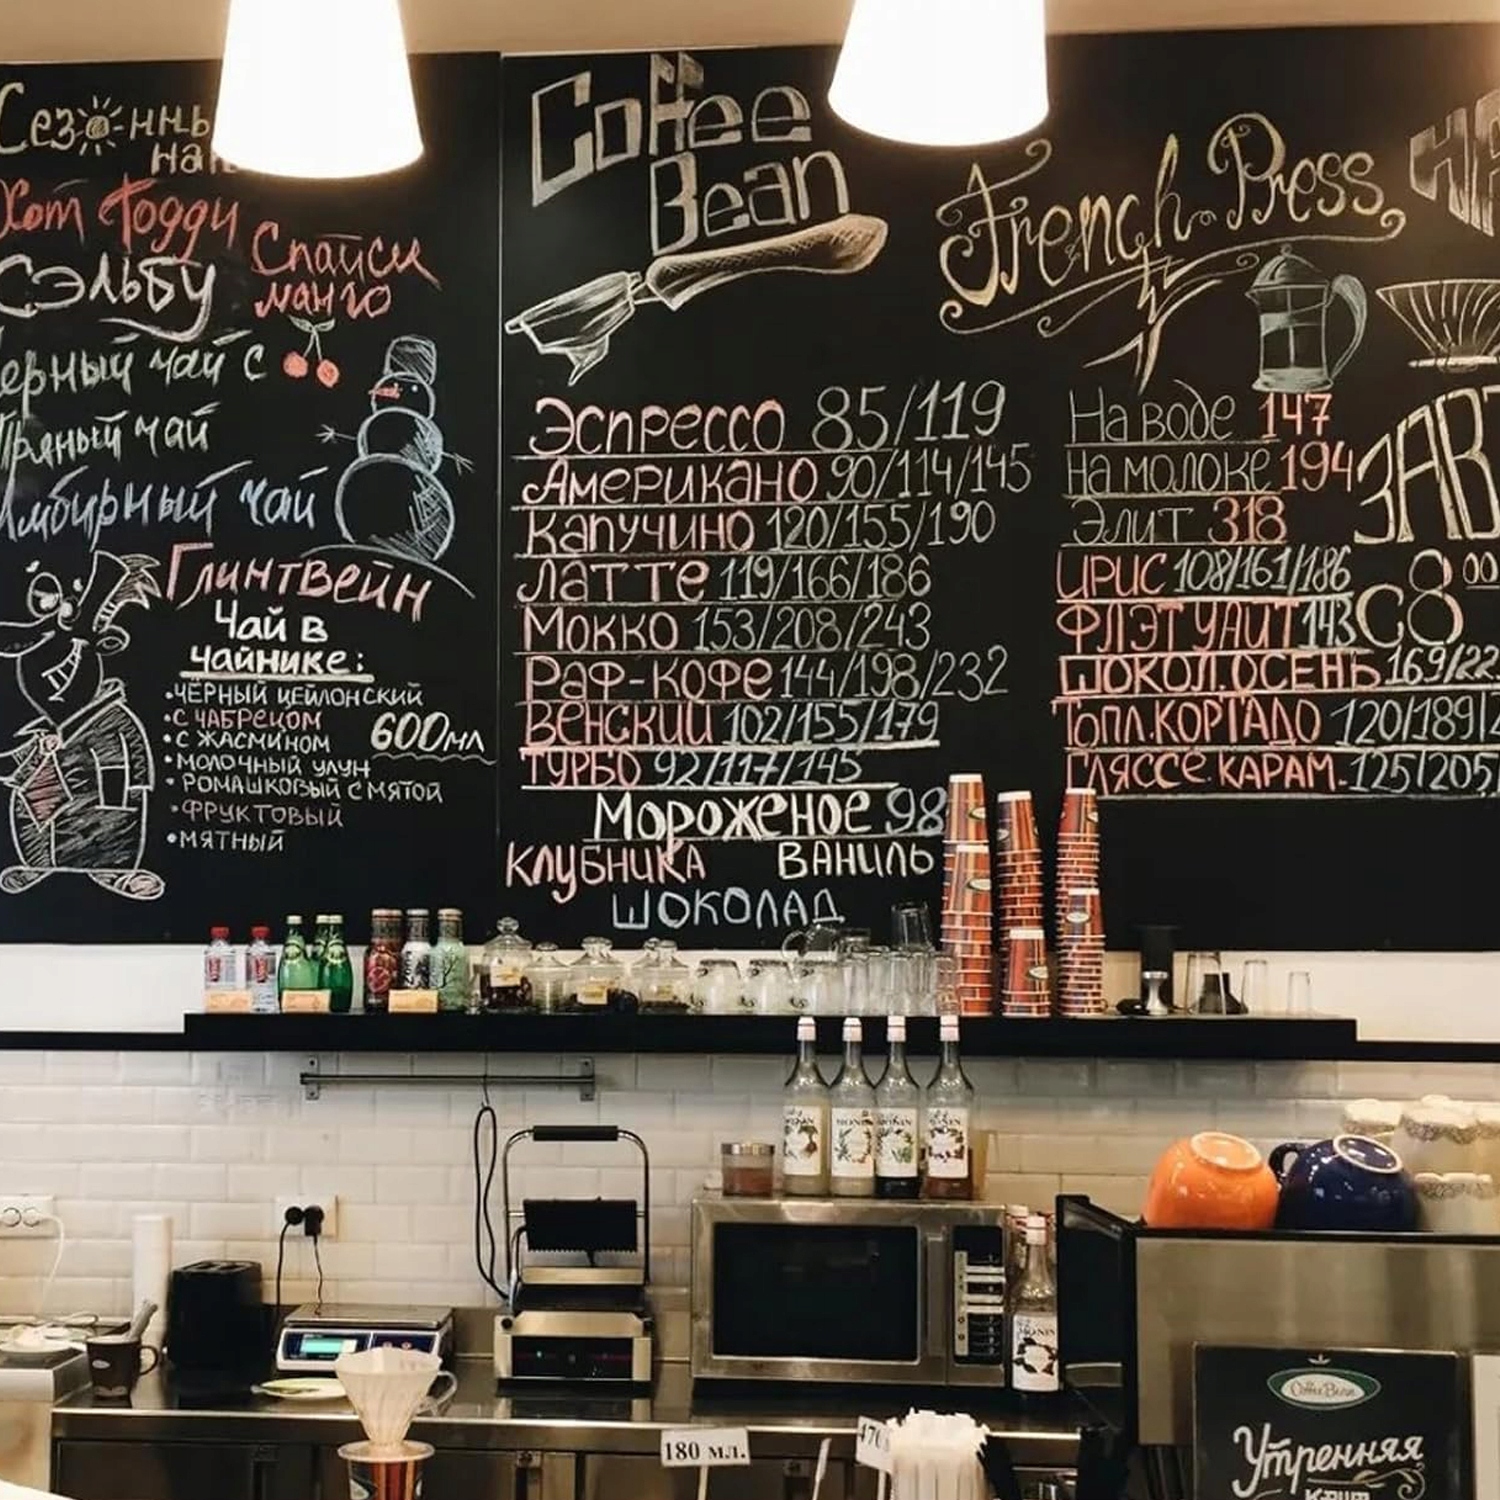 Хот Тодди
Спайси
манго
Сэльбу
чай с
Пряный чай
Имбирный чай
Глинтвейн
Чай в
чайнике:
•ЧЁРНЫЙ ЦЕЙЛОНСКИЙ
•С ЧАБРЕЦОМ
•С ЖАСМИНОМ
600мл
•МОЛОЧНЫЙ УЛУН
•РОМАШКОВЫЙ С МЯТОЙ
•ФРУКТОВЫЙ
•МЯТНЫЙ
Coffee
Bean
Эспрессо 85/119
Американо 90/114/145
Капучино 120/155/190
Латте 119/166/186
Мокко 153/208/243
Раф-кофе 144/198/232
Венский 102/155/179
Турбо 92/117/145
Мороженое 98
Клубника Ваниль
Шоколад
French Press
На воде 147
На молоке 194
Элит 318
Ирис 108/161/186
ФЛЭТ УАЙТ 143
ШОКОЛ.ОСЕНЬ 169/22
ТОПЛ.КОРТАДО 120/189/
ГЛЯССЕ КАРАМ. 125/205/
С 8 00
MONIN
MONIN
MONIN
MONIN
180 мл.
470
Coffee Bean
Утренняя